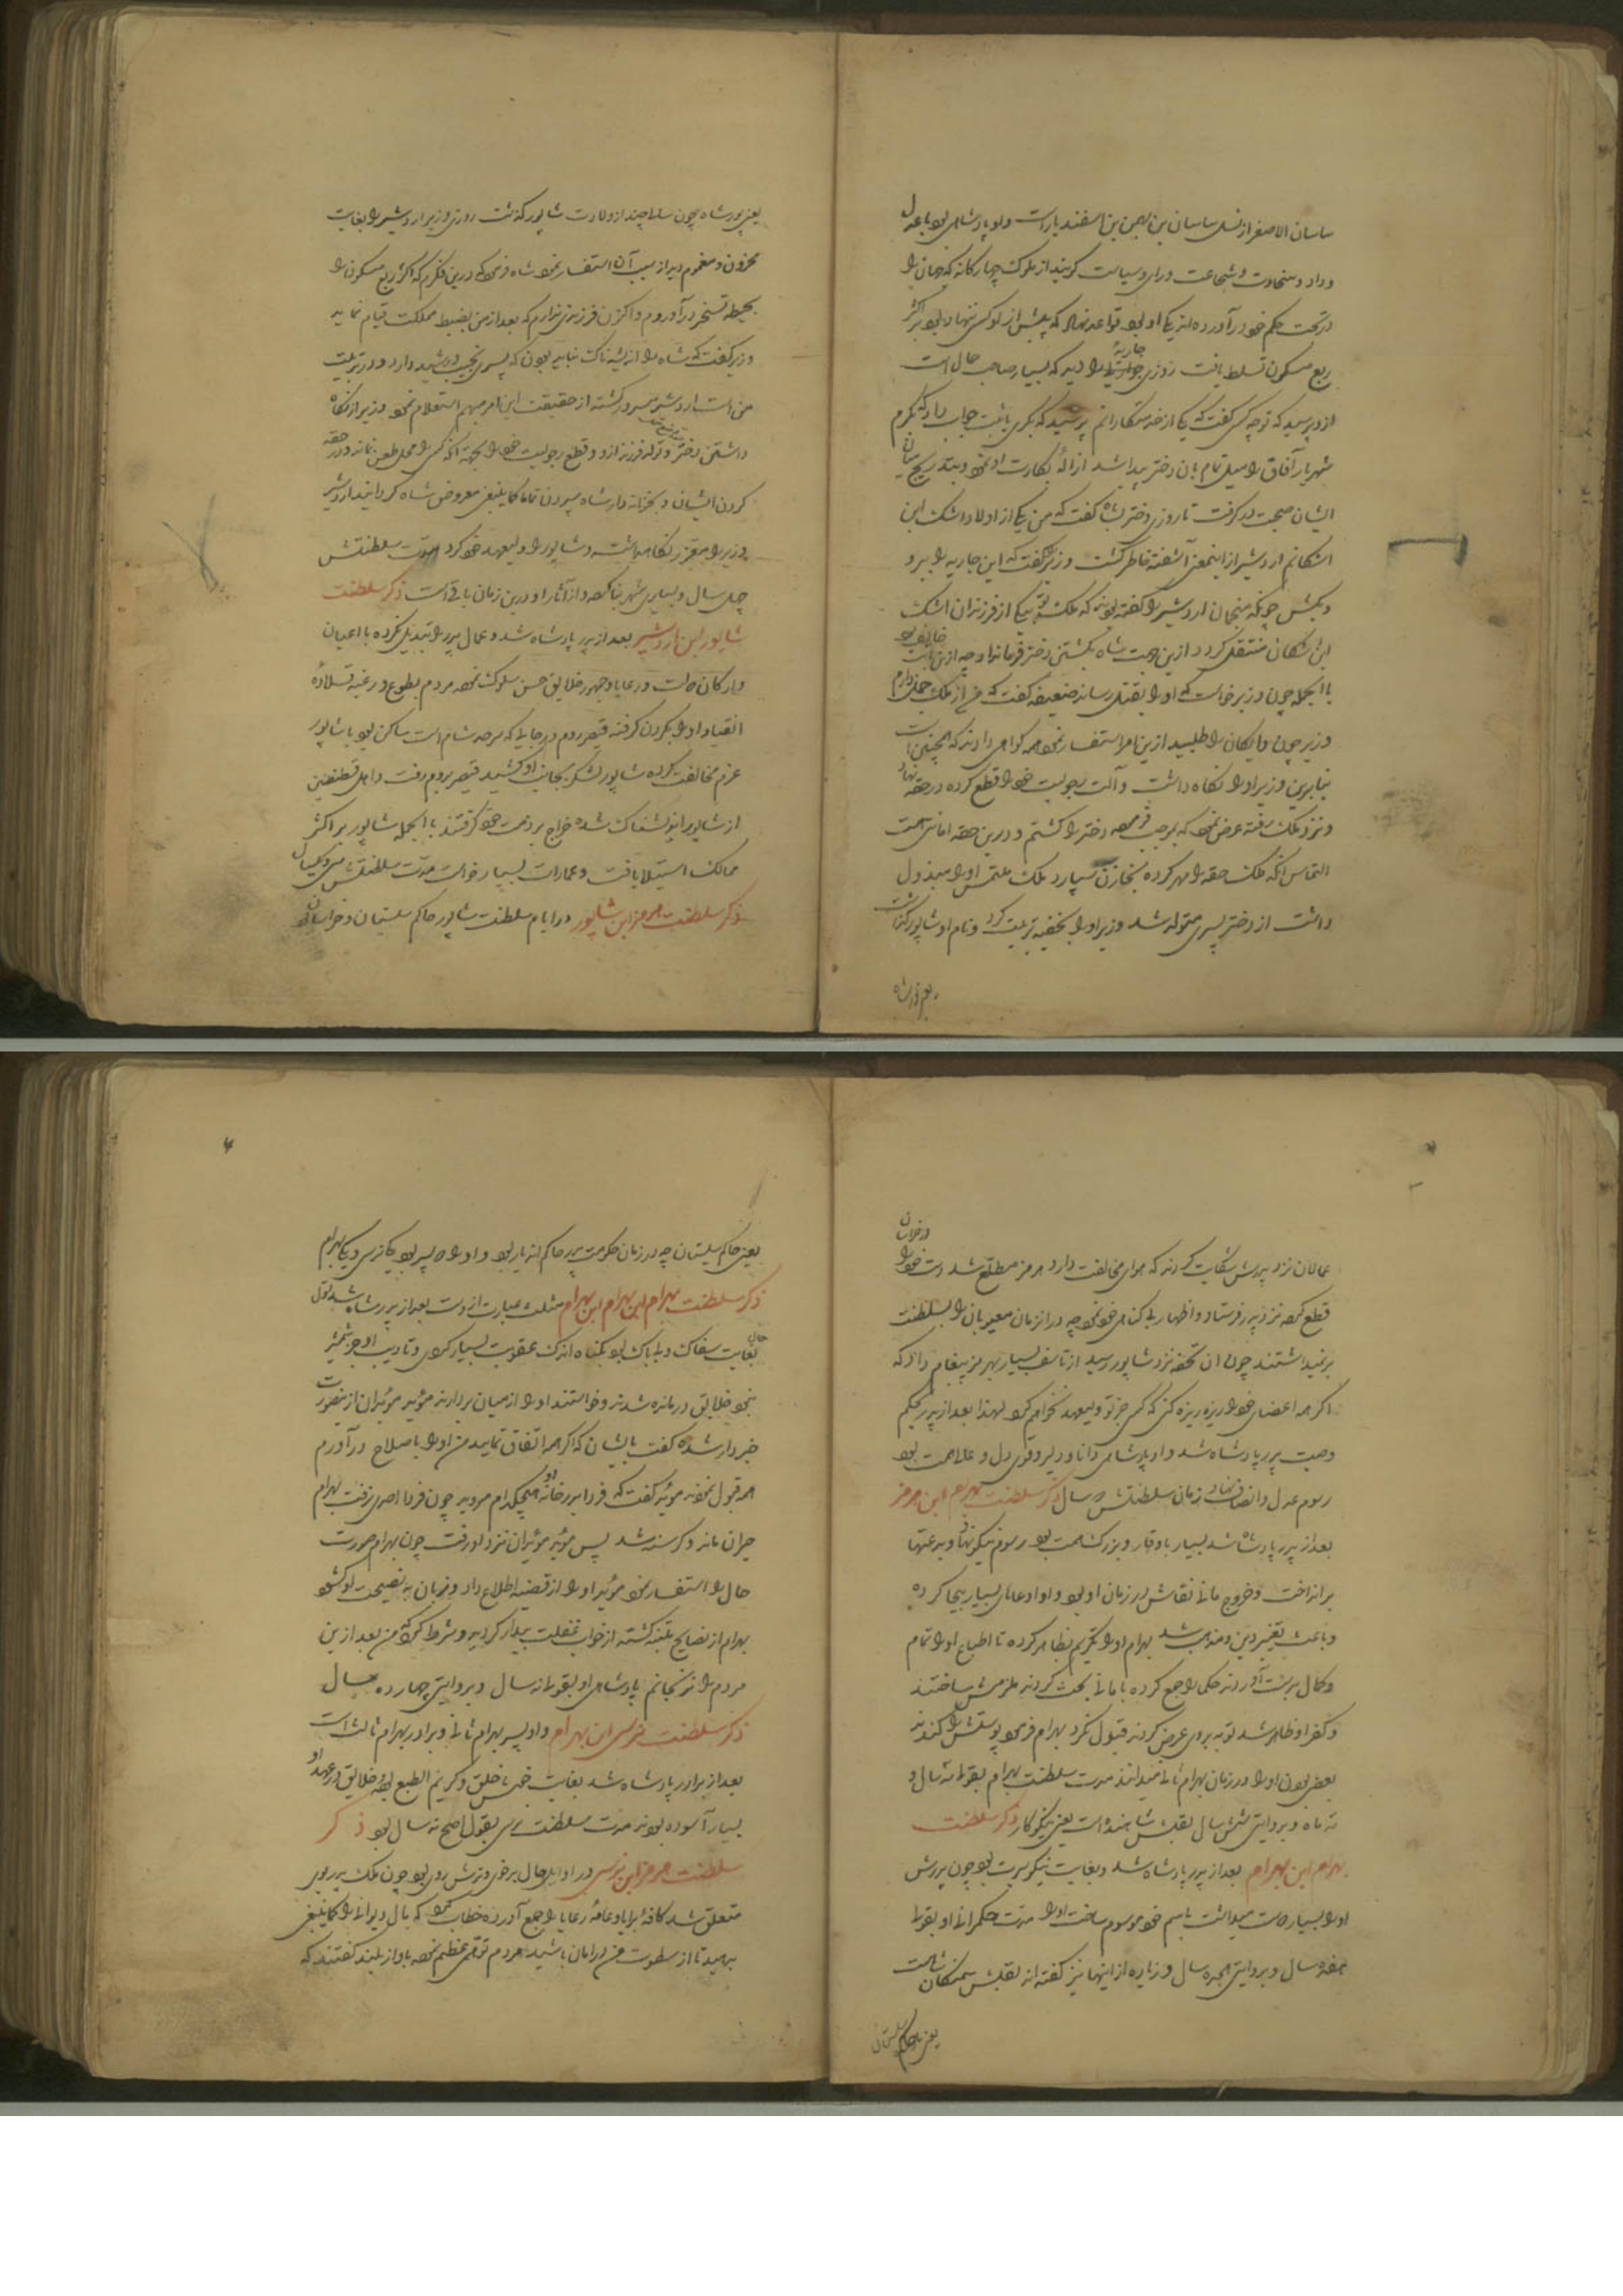 ساسان الاصغر از نسل ساسان بن بهمن بن اسفندیار است و او پادشاهی بود با عدل
و داد و سخاوت و شجاعت و رای و سیاست گویند از ملوک چهارکانه که جهان را
در تحت حکم خود درآورده اند یکی او بود قواعد نهاد که پیش از او کس ننهاده بود بر اکثر
ربع مسکون تسلط یافت روزی جاریهٔ را دید که بسیار صاحب جمال است
ازو پرسید که تو چه کسی گفت که یکی از خدمتکارانم پرسید که بکری یا ثیب جواب داد که بکرم
شهریار آفاق را میل تمام بان دختر پیدا شد ازالهٔ بکارت او نمود و بتدریج میان
ایشان صحبت در گرفت تا روزی دختر بشاه گفت که من یکی از اولاد اشک ابن
اشکانم اردشیر از اینمعنی آشفته خاطر گشت وزیر را گفت که این جاریه را ببر و
بکش چونکه منجمان اردشیر را گفته بودند که ملک تو بیکی از فرزندان اشک
ابن اشکان منتقل گردد ازین جهت شاه بکشتن دختر فرمان داد چه ازین بابت خایف بود
با الجمله چون وزیر خواست که او را بقتل رساند ضعیفه گفت که من از ملک حمل دارم
وزیر چون دایکان را طلبید ازین امر استفسار نمود همه گواهی دادند که همچنین است
بنابرین وزیر او را نکاه داشت و آلت رجولیت خود را قطع کرده در حقه نهاد
و نزد ملک رفته عرض نمود که بموجب فرموده دختر را کشتم و درین حقه امانتی است
التماس انکه ملک حقه را مهر کرده بخازن سپارد ملک ملتمس او را مبذول
داشت از دختر پسری متولد شد وزیر او را بخفیه تربیت کرد و نام او شاپور گذاشت
یعنی پورشاه
یعنی پور شاه چون سالی چند از ولادت شاپور گذشت روزی وزیر اردشیر را بغایت
محزون و مغموم دید از سبب آن استفسار نمود شاه فرمود که درین فکرم که اکثر ربع مسکون را
بحیطه تسخیر درآوردم و اکنون فرزندی ندارم که بعد از من بضبط مملکت قیام نماید
وزیر گفت که شاه را اندیشه ناک نباید بودن که پسری نجیب و رشید دارد و در تربیت
من است اردشیر مسرور گشته از حقیقت این امر مبهم استعلام نمود وزیر از نکاه
داشتن دختر و تولد فرزند ازو و قطع رجولیت خود را بجهت انکه کسی را محل طعن نماند و در حقه
کردن ایشان و بخزانه دار شاه سپردن تماما کما ینبغی معروض شاه گردانید اردشیر
وزیر را معزز نکاه داشته و شاپور را ولیعهد خود کرد مدت سلطنتش
چهل سال و بسیاری شهر بنا کرده و از آثار او درین زمان باقی است ذکر سلطنت
شاپور ابن اردشیر بعد از پدر پادشاه شد و عمال پدر را تبدیل نکرده با اعیان
و ارکان دولت و رعایا و جمهور خلایق حسن سلوک نموده مردم بطوع و رغبه قلادهٔ
انقیاد او را بکردن گرفتند قیصر روم در جایی که سرحد شام است ساکن بود با شاپور
عزم مخالفت کرده شاپور لشکر بجانب او کشید قیصر بروم رفت و اهل قسطنطین
از شاپور اندیشناک شده خراج بر ذمت خود گرفتند با الجمله شاپور بر اکثر
ممالک استیلا یافت و عمارات بسیار خواست مدت سلطنتش سی و یکسال
ذکر سلطنت هرمز ابن شاپور در ایام سلطنت شاپور حاکم سیستان و خراسان بود
در خراسان
عمالان نزد پدرش شکایت کردند که هوای مخالفت دارد هرمز مطلع شد دست خود را
قطع کرده نزد پدر فرستاد و اظهار بی گناهی خود نمود چه در ان زمان معیوبان را بسلطنت
برنمیداشتند چون ان تحفه نزد شاپور رسید از تاسف بسیار بهرمز پیغام داد که
اگر همه اعضای خود را ریزه ریزه کنی که کسی جز تو ولیعهد نخواهم کرد لهذا بعد از پدر بحکم
وصیت پدر پادشاه شد و او پادشاهی دانا و دلیر و قوی دل و عالی همت بود
رسوم عدل و انصاف نهاد زمان سلطنتش دو سال ذکر سلطنت بهرام ابن هرمز
بعد از پدر پادشاه شد بسیار با وقار و بزرگ همت بود رسوم نیکو نهاد و بدعتها
برانداخت و خروج مانی نقاش در زمان او بود و او ادعاهای بسیار بیجا کرده
و باعث تغییر دین و مذهب شد بهرام او را تکریم بظاهر کرده تا اطباع او را تمام
و کمال بدست آوردند حکما را جمع کرده با مانی بحث کردند ملزمش ساختند
و کفر او ظاهر شد توبه بروی عرض کردند قبول نکرد بهرام فرمود پوستش را کندند
بعضی بودن او را در زمان بهرام ثانی میدانند مدت سلطنت بهرام بقولی سه سال و
سه ماه و بروایتی شش سال لقبش شاهنده است یعنی نیکوکار ذکر سلطنت
بهرام ابن بهرام بعد از پدر پادشاه شد و بغایت نیکو سیرت بود چون پدرش
او را بسیار دوست میداشت باسم خود موسوم ساخت او را مدت حکمرانی او بقولی
هفده سال و بروایتی هجده سال و زیاده از اینها نیز گفته اند لقبش سکان شاه است
یعنی حاکم سیستان
یعنی حاکم سیستان چه در زمان حکومت پدر حاکم اندیار بود و او را دو پسر بود یکی نرسی و یکی بهرام
ذکر سلطنت بهرام ابن بهرام ابن بهرام مثلث عبارت ازوست بعد از پدر شاه شد
بغایت سفاک و بی باک بود بکناه اندک عقوبت بسیار کردی و تادیب او جز شمشیر
نبود خلایق درمانده شدند و خواستند او را از میان بردارند موبد موبدان ازین صورت
خبردار شده گفت بایشان که اگر همه اتفاق نمایید من او را باصلاح درآورم
همه قبول نمودند موبد گفت که فردا بدر خانه او هیچکدام مروید چون فردا احدی نرفت بهرام
حیران ماند و گرسنه شد پس موبد موبدان نزد او رفت چون بهرام صورت
حال را استفسار نمود موبد او را از قضیه اطلاع داد و زبان به نصیحت او گشود
بهرام از نصایح متنبه گشته از خواب غفلت بیدار گردید و شرط کرد که من بعد ازین
مردم را نرنجانم پادشاهی او بقولی نه سال و بروایتی چهارده سال
ذکر سلطنت نرسی ابن بهرام و او پسر بهرام ثانی و برادر بهرام ثالث است
بعد از برادر پادشاه شد بغایت خوش خلق و کریم الطبع بوده خلایق در عهد او
بسیار آسوده بودند مدت سلطنت نرسی بقول اصح نه سال بود ذکر
سلطنت هرمز ابن نرسی در اوایل حال بدخوی و ترش روی بود چون ملک پدر بوی
متعلق شد کافهٔ برایا و عامهٔ رعایا را جمع آورده خطاب کرد که مال دیوانی را کما ینبغی
بدهید تا از سطوت من در امان باشید مردم توهمی عظیم نموده باواز بلند گفتند که